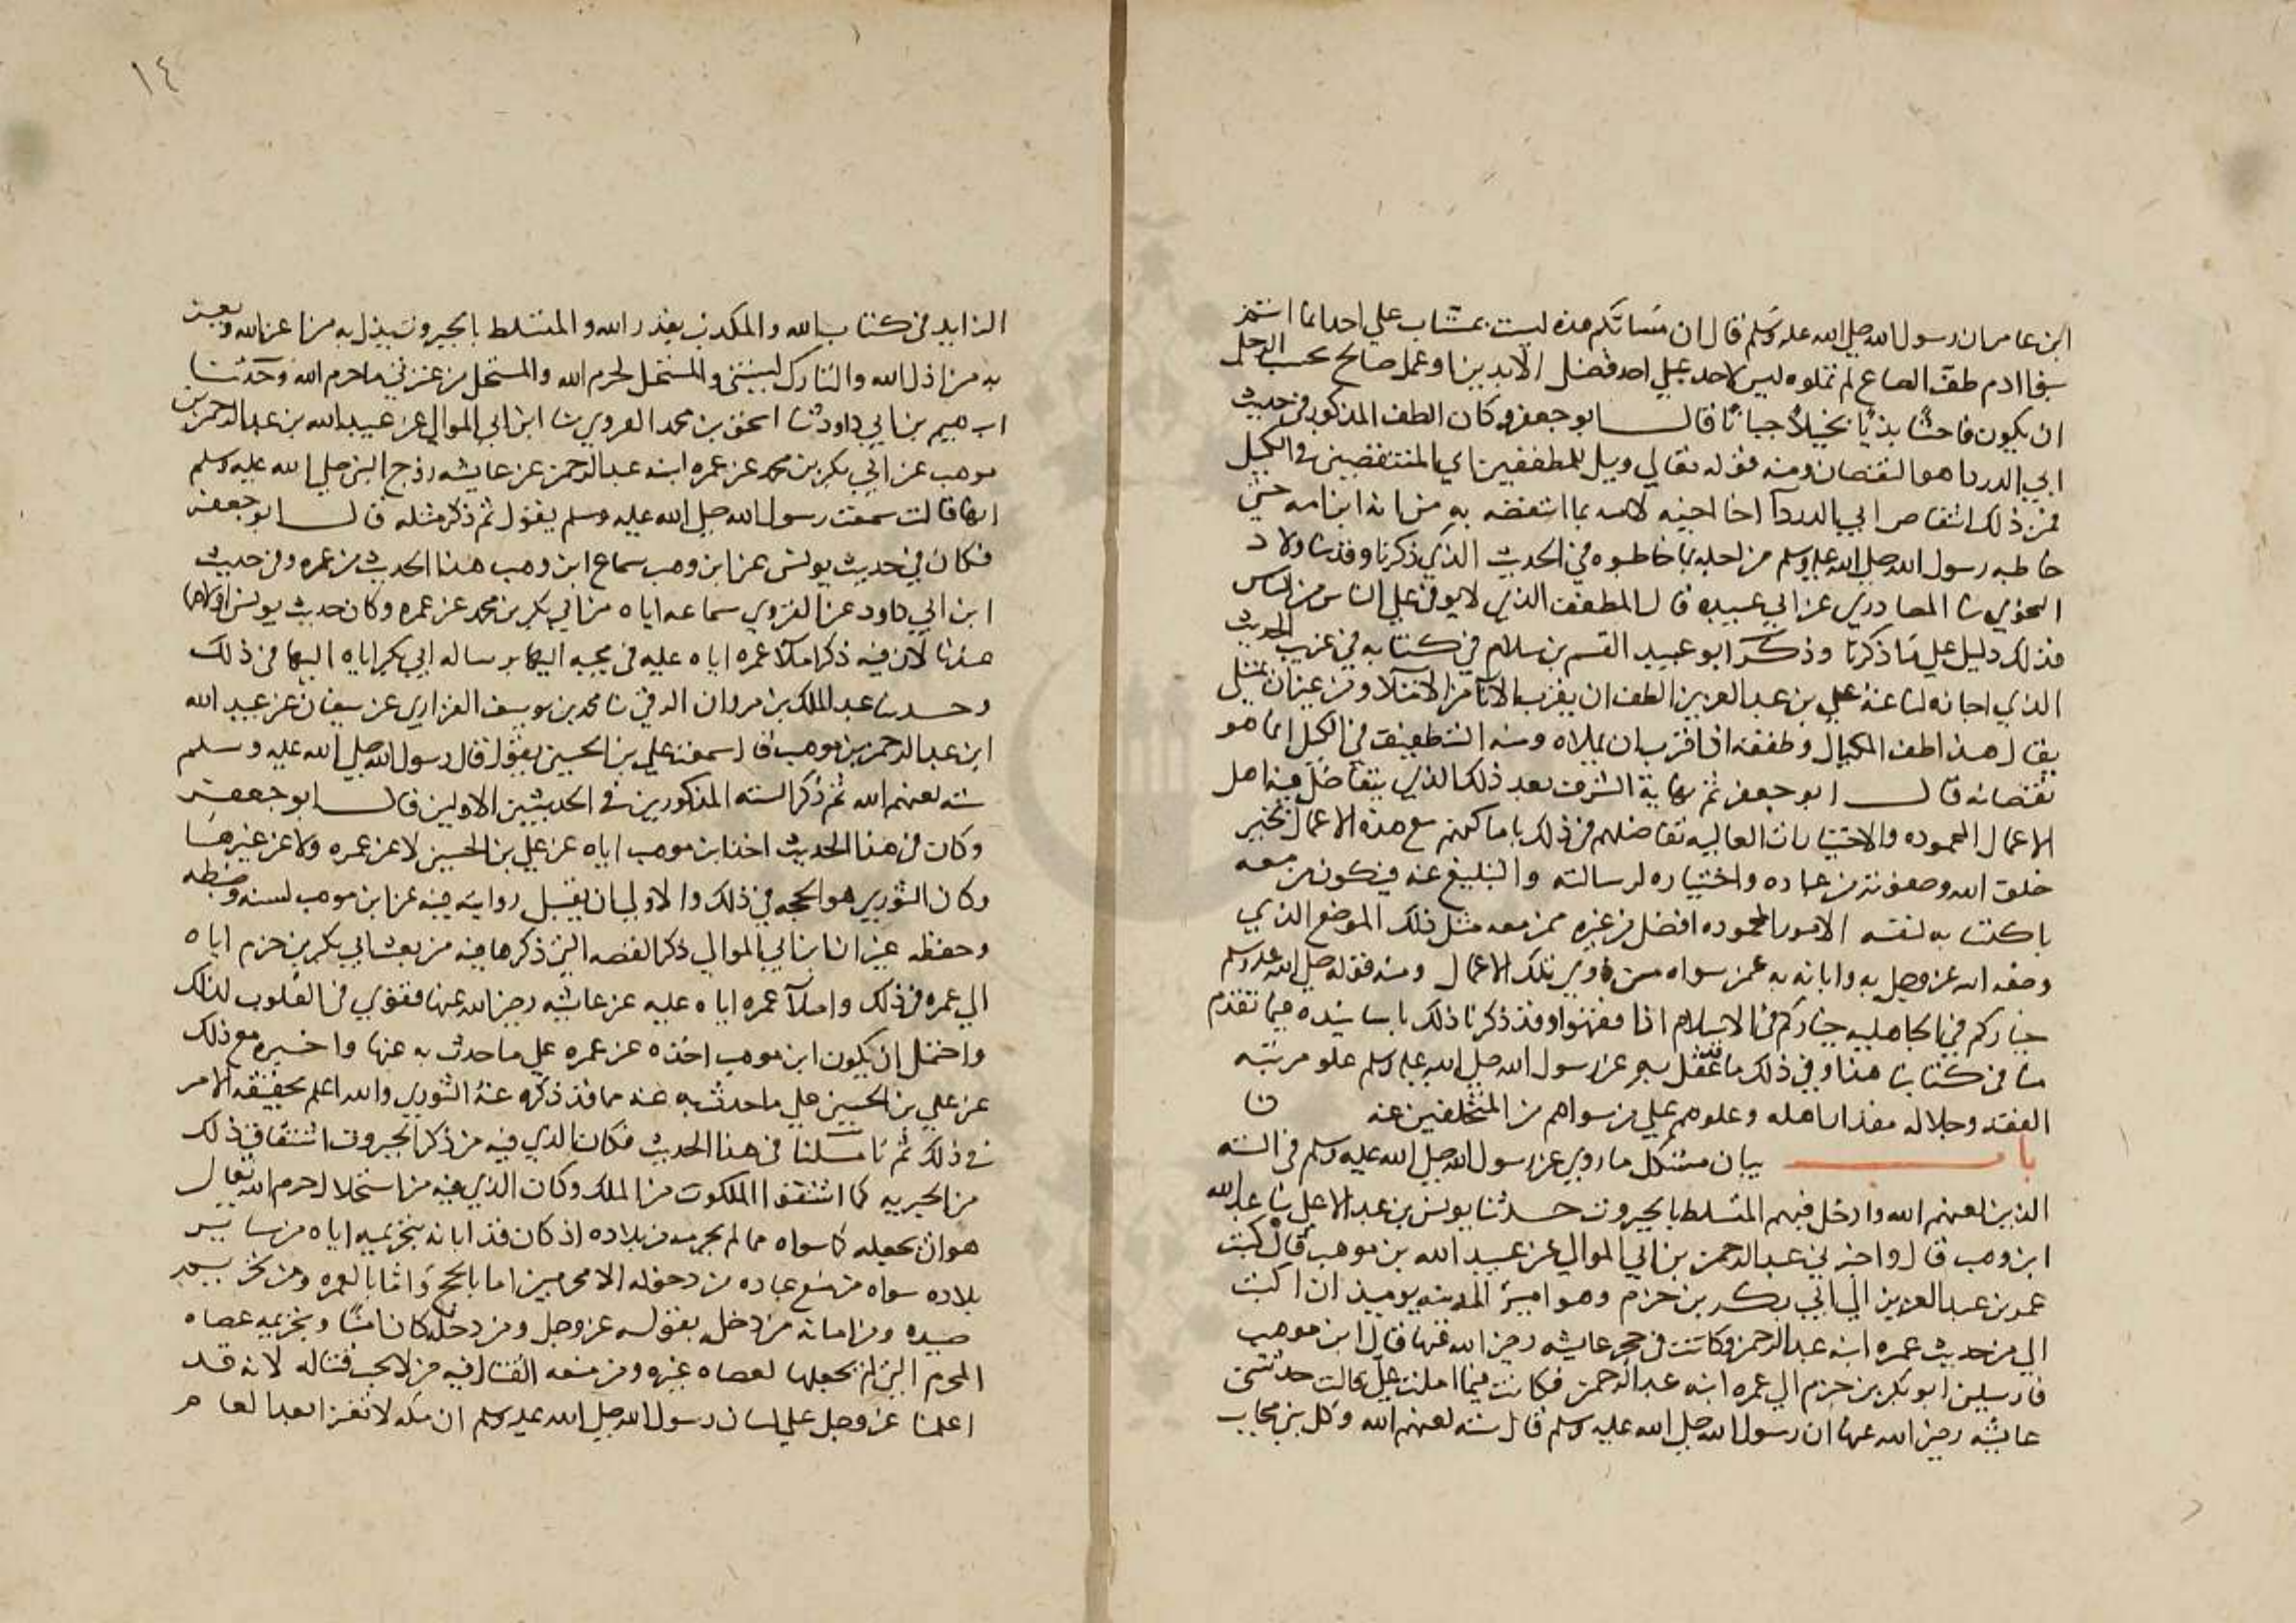 ابن عامر ان رسول الله صلى الله عليه وسلم قال ان مسابكم هذه ليست بمساب على احد انما انتم
بنوا ادم طف الصاع لم تملوه ليس لاحد على احد فضل الا بدين او عمل صالح بحسب الرجل
ان يكون فاحشا بذيا بخيلا جبانا قال ابو جعفر وكان الطف المذكور في حديث
ابي الدرداء هو النقصان ومنه قوله تعالى ويل للمطففين اي المنتقصين في الكيل
فمن ذلك انتقاص ابي الدرداء اخا لجينه لامه بما انتقصه به من انه ابن امه حتى
خاطبه رسول الله صلى الله عليه وسلم من اجله بما خاطبوه في الحديث الذي ذكرنا وقد ثنا ولاد
النحوي ثنا المصادري عن ابي عبيده قال المطفف الذي لا يوفي على الناس من الناس
فذلك دليل على ما ذكرنا وذكر ابو عبيد القسم بن سلام في كتابه في غريب الحديث
الذي اجازه لنا عنه علي بن عبد العزيز الطف ان يقرب الاناء من الامتلاء ومن غير ان يمتلي
يقال هذا طف المكيال وطففه اذا قرب ان يملاه ومنه التطفيف في الكيل انما هو
نقصانه قال ابو جعفر ثم نهاية الشرف بعد ذلك الذي يتفاضل فيه اهل
الاعمال المحموده والاختيارات العاليه تفاضلهم في ذلك باماكنهم مع هذه الاعمال بخير
خلق الله وصفوته من عباده واختياره لرسالته والتبليغ عنه فيكون من معه
باكتسابه لنفسه الامور المحموده افضل من غيره ممن معه مثل ذلك الموضع الذي
وضعه الله عز وجل به وابانه به عمن سواه من ذوي تلك الاعمال ومنه قوله صلى الله عليه وسلم
خياركم في الجاهليه خياركم في الاسلام اذا فقهوا وقد ذكرنا ذلك باسانيده فيما تقدم
منا في كتابنا هذا وفي ذلك ما عقل به عن رسول الله صلى الله عليه وسلم علو مرتبه
الفقه وجلاله مقدار اهله وعلوهم على من سواهم من المتخلفين عنه ن
باب بيان مشكل ما روي عن رسول الله صلى الله عليه وسلم في السته
الذين لعنهم الله وادخل فيهم المتسلط بالجبروت حدثنا يونس بن عبد الاعلى ثنا عبد الله
ابن وهب قال واخبرني عبد الرحمن بن ابي الموالي عن عبيد الله بن موهب قال كتب
عمر بن عبد العزيز الى ابي بكر بن حزم وهو امير المدينه يوميذ ان اكتب
الي من حديث عمره ابنه عبد الرحمن وكانت في حجر عايشه رضي الله عنها قال ابن موهب
فارسلني ابو بكر بن حزم الى عمره ابنه عبد الرحمن فكانت فيما املت علي قالت حدثتني
عايشه رضي الله عنها ان رسول الله صلى الله عليه وسلم قال سته لعنهم الله وكل نبي مجاب
١٤
الزايد في كتاب الله والمكذب بقدر الله والمتسلط بالجبروت يذل به من اعز الله ويعز
به من اذل الله والتارك لسنتي والمستحل لحرم الله والمستحل من عترتي ما حرم الله وحدثنا
ابرهيم بن ابي داود ثنا اسحق بن محمد الفروي ثنا ابن ابي الموال عن عبيد الله بن عبد الرحمن بن
موهب عن ابي بكر بن محمد عن عمره ابنه عبد الرحمن عن عايشه زوج النبي صلى الله عليه وسلم
انها قالت سمعت رسول الله صلى الله عليه وسلم يقول ثم ذكر مثله قال ابو جعفر
فكان في حديث يونس عن ابن وهب سماع ابن وهب هذا الحديث من عمره وفي حديث
ابن ابي داود عن الفروي سماعه اياه من ابي بكر بن محمد عن عمره وكان حديث يونس اولاهما
عندنا لان فيه ذكر املا عمره اياه عليه في مجيه اليها برساله ابي بكر اياه اليها في ذلك
وحدثنا عبد الملك بن مروان الرقي ثنا محمد بن يوسف الفزاري عن سفيان عن عبيد الله
ابن عبد الرحمن بن موهب قال سمعت علي بن الحسين يقول قال رسول الله صلى الله عليه وسلم
سته لعنهم الله ثم ذكر السته المذكورين في الحديثين الاولين قال ابو جعفر
وكان في هذا الحديث اخذ ابن موهب اياه عن علي بن الحسين لا عن عمره ولا عن غيرها
وكان الثوري هو الحجه في ذلك والاولى ان يقبل روايته فيه عن ابن موهب لسنه وضبطه
وحفظه غير ان ابن ابي الموالي ذكر القصه التي ذكرها فيه من بعث ابي بكر بن حزم اياه
الى عمره في ذلك واملا عمره اياه عليه عن عايشه رضي الله عنها فقوي في القلوب لذلك
واحتمل ان يكون ابن موهب اخذه عن عمره على ما حدث به عنها واخبره مع ذلك
عن علي بن الحسين على ما حدث به عنه مما قد ذكره عنه الثوري والله اعلم بحقيقه الامر
في ذلك ثم تاملنا في هذا الحديث فكان الذي فيه من ذكر الجبروت اشتقاق ذلك
من الجبريه كما اشتقوا الملكوت من الملك وكان الذي فيه من استحلال حرم الله تعالى
هو ان يجعله كما سواه مما لم يحرمه من بلاده اذ كان قد ابانه بتحريمه اياه من ساير
بلاده سواه من منع عباده من دخوله الا محرمين اما بالحج واما بالعمره ومن تحريم
صيده ومن امانه من دخل بقوله عز وجل ومن دخله كان امنا وبتحريمه عضاه
المحرم التي لم يجعلها لعضاه غيره ومن منعه القتال فيه من لا يجب قتاله لانه قد
اعلمنا عز وجل على لسان رسول الله صلى الله عليه وسلم ان مكه لا تغزا بعد العام